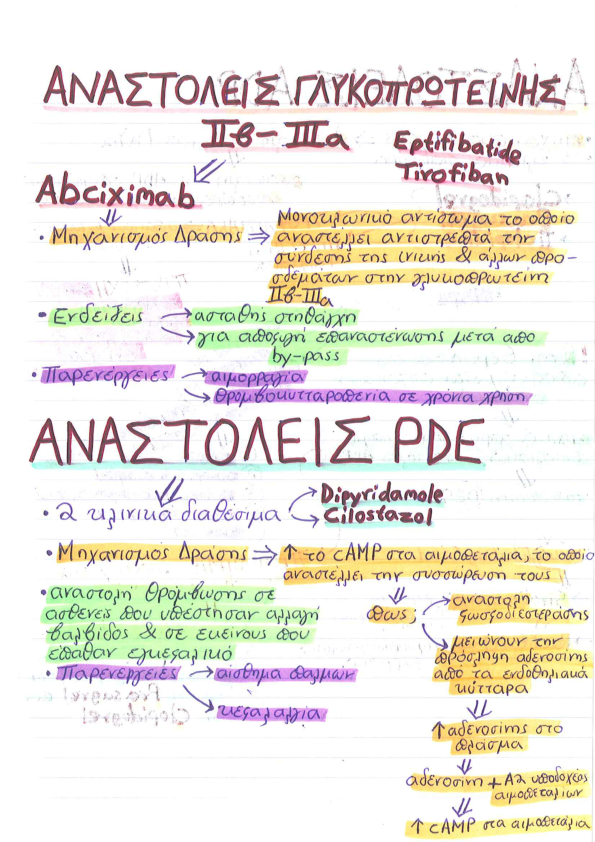 ΑΝΑΣΤΟΛΕΙΣ ΓΛΥΚΟΠΡΩΤΕΙΝΗΣ
IIβ - IIIa
Eptifibatide
Tirofiban
Abciximab
• Μηχανισμός Δράσης ⇒ Μονοκλωνικό αντίσωμα το οποίο
αναστέλλει αντιστρεπτά την
σύνδεσης της ινικής & άλλων προ-
σδεμάτων στην γλυκοπρωτείνη
IIβ-IIIa
• Ενδείξεις → ασταθής στηθάγχη
→ για αποφυγή επαναστένωσης μετά απο
by-pass
• Παρενέργειες → αιμορραγία
→ θρομβοκυτταροπενία σε χρόνια χρήση
ΑΝΑΣΤΟΛΕΙΣ PDE
• 2 κλινικά διαθέσιμα → Dipyridamole
→ Cilostazol
• Μηχανισμός Δράσης ⇒ ↑ το cAMP στα αιμοπετάλια, το οποίο
αναστέλλει την συσσώρευση τους
• αναστολή θρόμβωσης σε
ασθενείς που υπέστησαν αλλαγή
βαλβίδος & σε εκείνους που
έπαθαν εγκεφαλικό
• Παρενέργειες → αίσθημα παλμών
→ κεφαλαλγία
πως;
→ αναστολη
φωσφοδιεστεράσης
→ μειώνουν την
πρόσληψη αδενοσίνης
από τα ενδοθηλιακά
κύτταρα
↑ αδενοσίνης στο
πλάσμα
αδενοσίνη + Α2 υποδοχείς
αιμοπεταλίων
↑ cAMP στα αιμοπετάλια